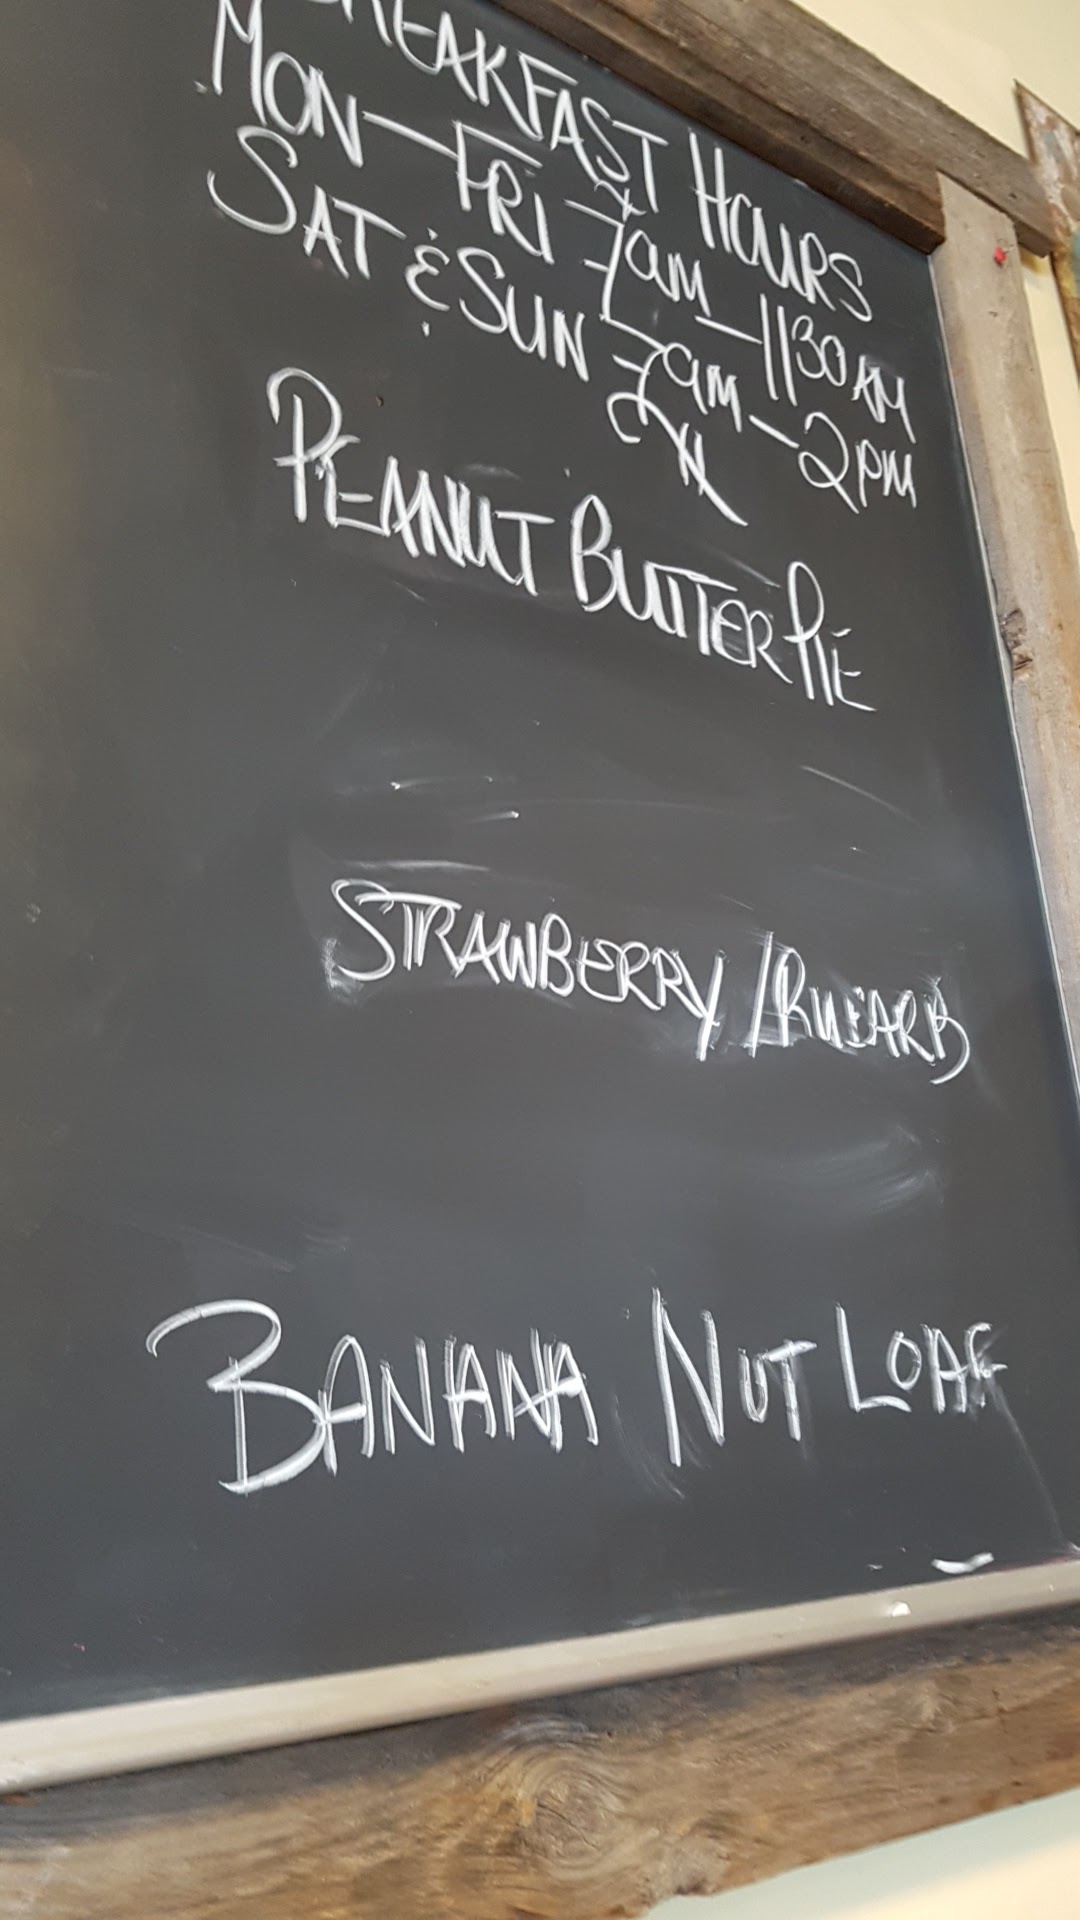 BREAKFAST HOURS
MON-FRI 7am-1130AM
SAT & SUN 7am-2PM
PEANUT BUTTER PIE
STRAWBERRY/RUEARB
BANANA NUT LOAF